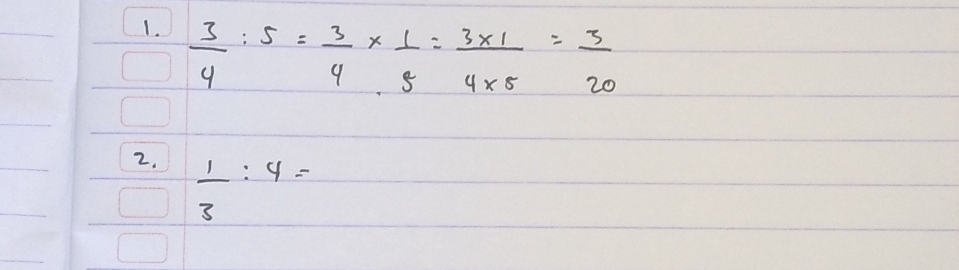 1. 3/4 : 5 = 3/4 × 1/5 = 3×1/4×5 = 3/20
2. 1/3 : 4 =